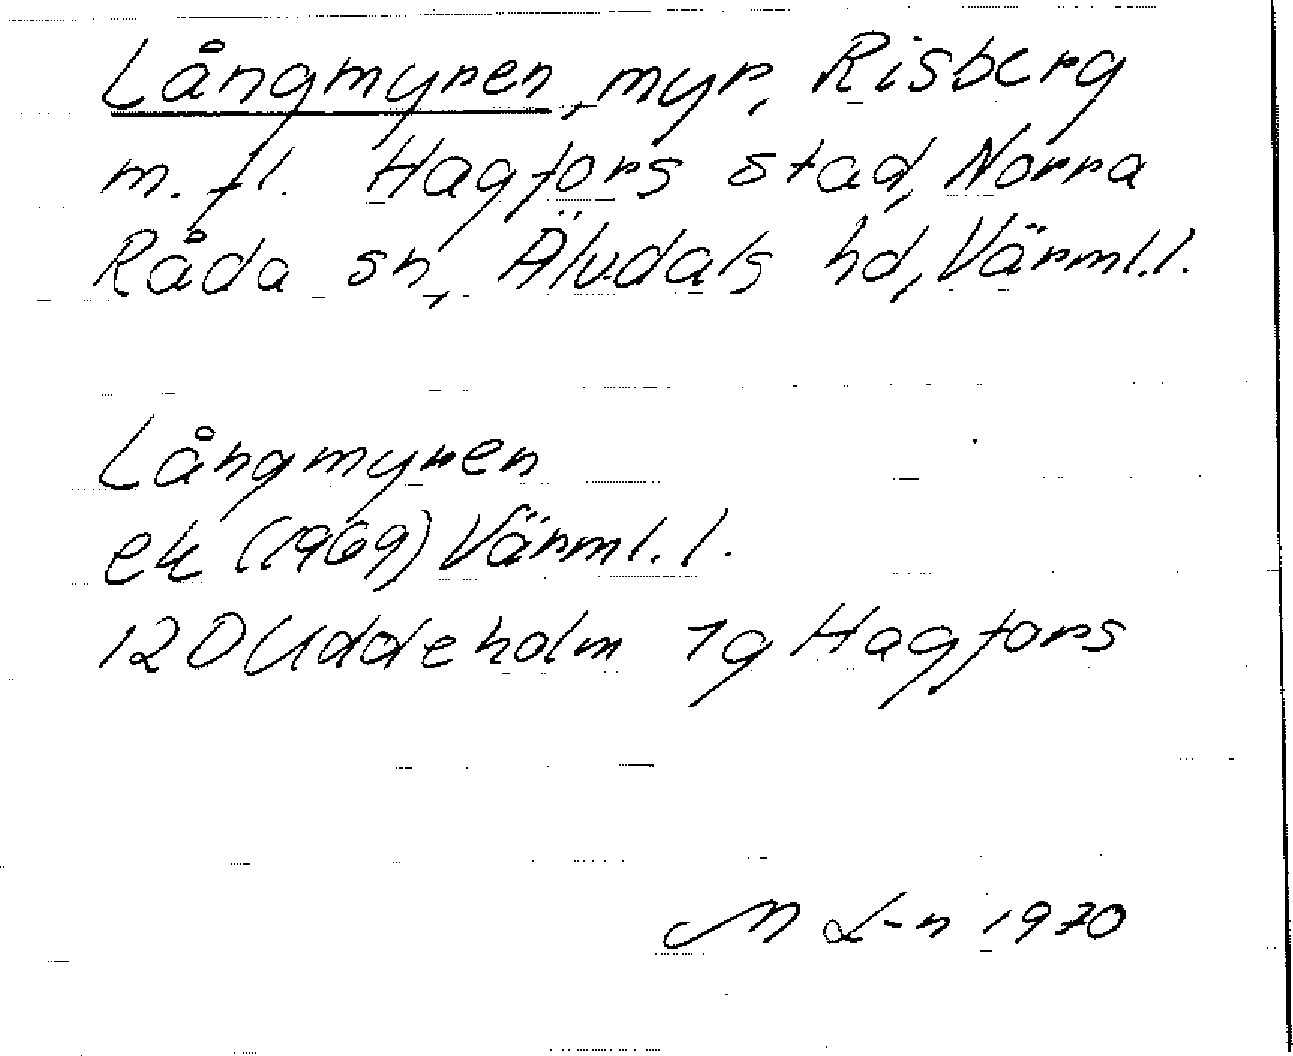 Långmyren, myr, Risberg
m. fl. Hagfors stad, Norra
Råda sn, Älvdals hd, Värml.l.
Långmyren
ek (1969) Värml.l.
12D Uddeholm 1g Hagfors
M L-n 1970